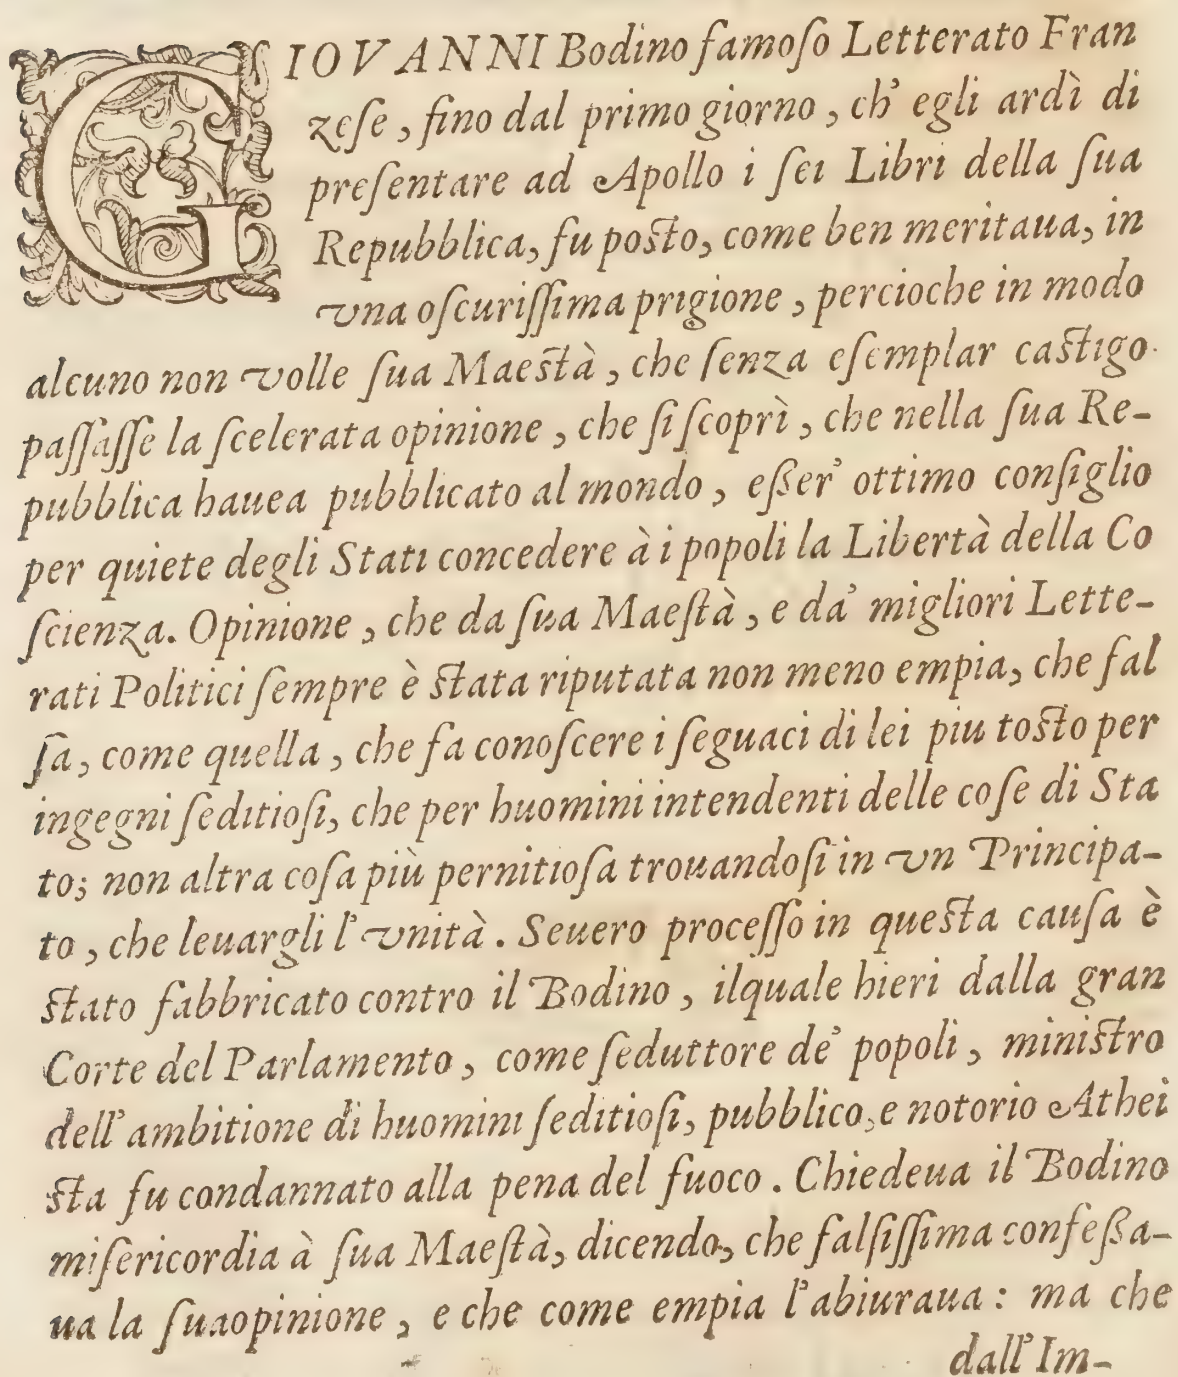 GIOVANNI Bodino famoſo Letterato Fran
zeſe, fino dal primo giorno, ch' egli ardì di
preſentare ad Apollo i ſei Libri della ſua
Repubblica, fu poſto, come ben meritaua, in
vna oſcuriſſima prigione, percioche in modo
alcuno non volle ſua Maeſtà, che ſenza eſemplar caſtigo
paſſaſſe la ſcelerata opinione, che ſi ſcoprì, che nella ſua Re-
pubblica hauea pubblicato al mondo, eſſer' ottimo conſiglio
per quiete degli Stati concedere à i popoli la Libertà della Co
ſcienza. Opinione, che da ſua Maeſtà, e da' migliori Lette-
rati Politici ſempre è ſtata riputata non meno empia, che fal
ſa, come quella, che fa conoſcere i ſeguaci di lei piu toſto per
ingegni ſeditioſi, che per huomini intendenti delle coſe di Sta
to; non altra coſa più pernitioſa trouandoſi in vn Principa-
to, che leuargli l' vnità. Seuero proceſſo in queſta cauſa è
ſtato fabbricato contro il Bodino, ilquale hieri dalla gran
Corte del Parlamento, come ſeduttore de' popoli, miniſtro
dell' ambitione di huomini ſeditioſi, pubblico, e notorio Athei
ſta fu condannato alla pena del fuoco. Chiedeua il Bodino
miſericordia à ſua Maeſtà, dicendo, che falſiſſima confeſſa-
ua la ſuaopinione, e che come empia l'abiuraua: ma che
dall' Im-